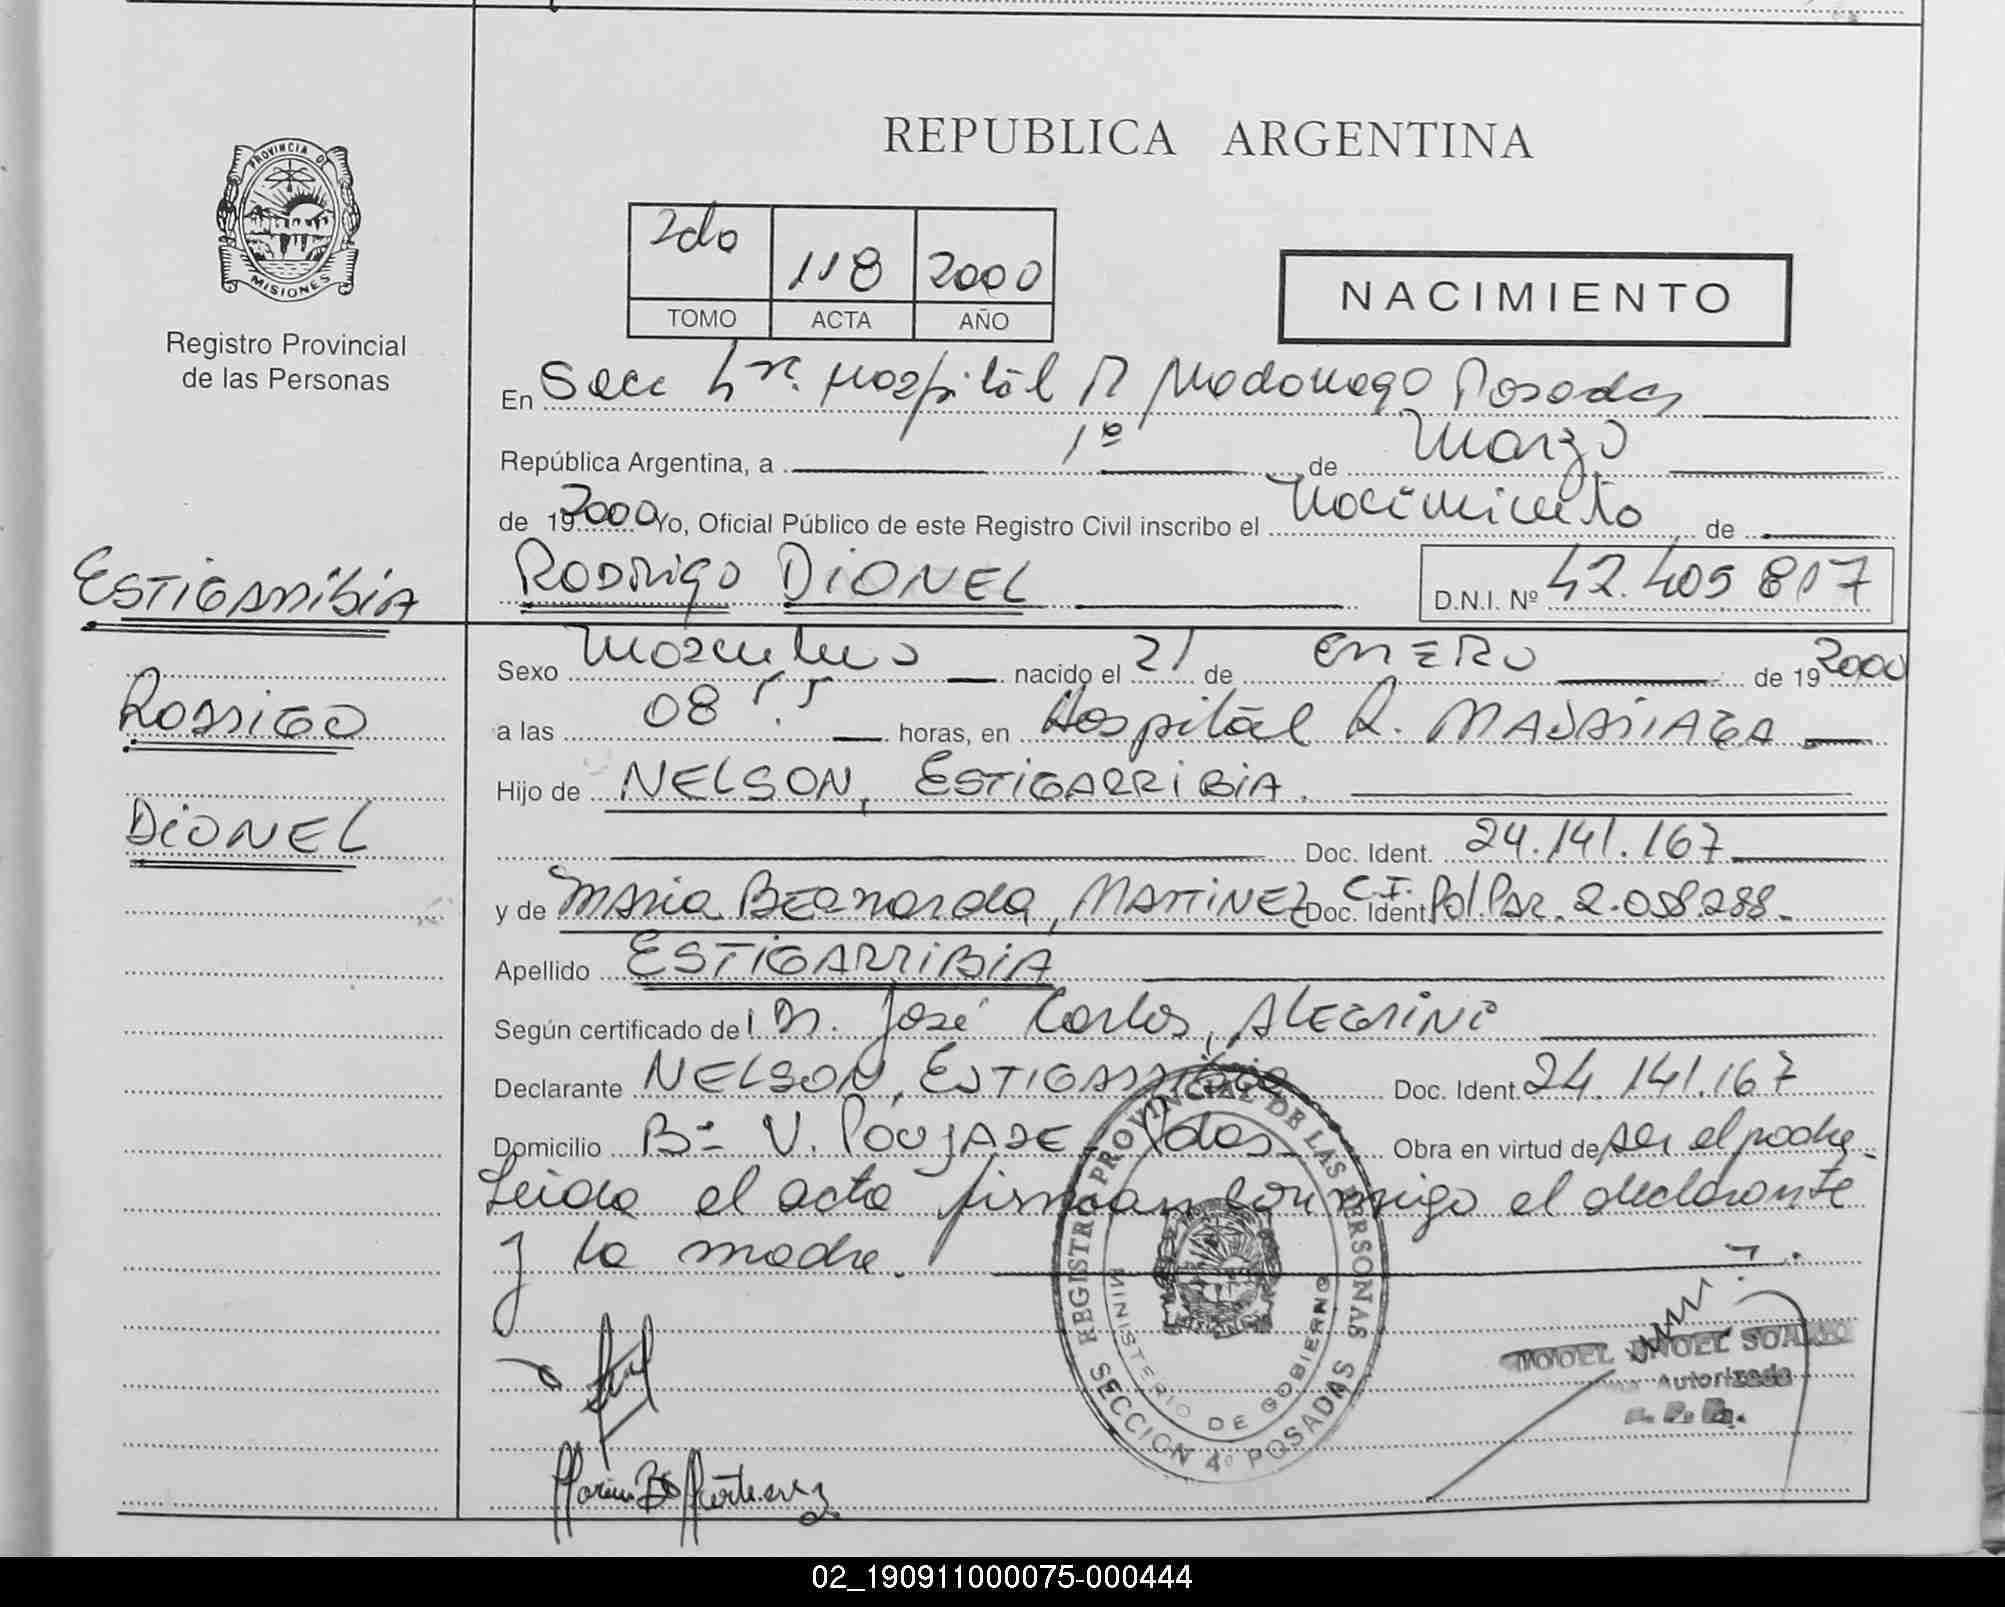 REPUBLICA ARGENTINA
PROVINCIA DE
MISIONES
Registro Provincial
de las Personas
2do 118 2000
TOMO ACTA AÑO
NACIMIENTO
En Secc 4ta. Hospital R Madariaga Posadas
República Argentina, a 1º de Marzo
de 192000 Yo, Oficial Público de este Registro Civil inscribo el Nacimiento de
ESTIGARRIBIA
RODRIGO DIONEL D.N.I. Nº 42.409 817
Sexo Masculino nacido el 21 de ENERO de 19 2000
RODRIGO
a las 08 horas, en Hospital R. MADARIAGA
Hijo de NELSON, ESTIGARRIBIA.
DIONEL
Doc. Ident. 24.141.167
y de MARIA BERNARDA, MARTINEZ Doc. Ident C.I. Pol Par. 2.058.288.
Apellido ESTIGARRIBIA
Según certificado de l Dr. José Carlos, ALEGRINI
Declarante NELSON, ESTIGARRIBIA Doc. Ident. 24.141.167
Domicilio Bº V. POUJADE Pdas Obra en virtud de ser el padre.
Leida el acta firman conmigo el declarante
y la madre.
REGISTRO PROVINCIAL DE LAS PERSONAS
MINISTERIO DE GOBIERNO
SECCION 4º POSADAS
Autorizada
Maria B Martinez
02_190911000075-000444